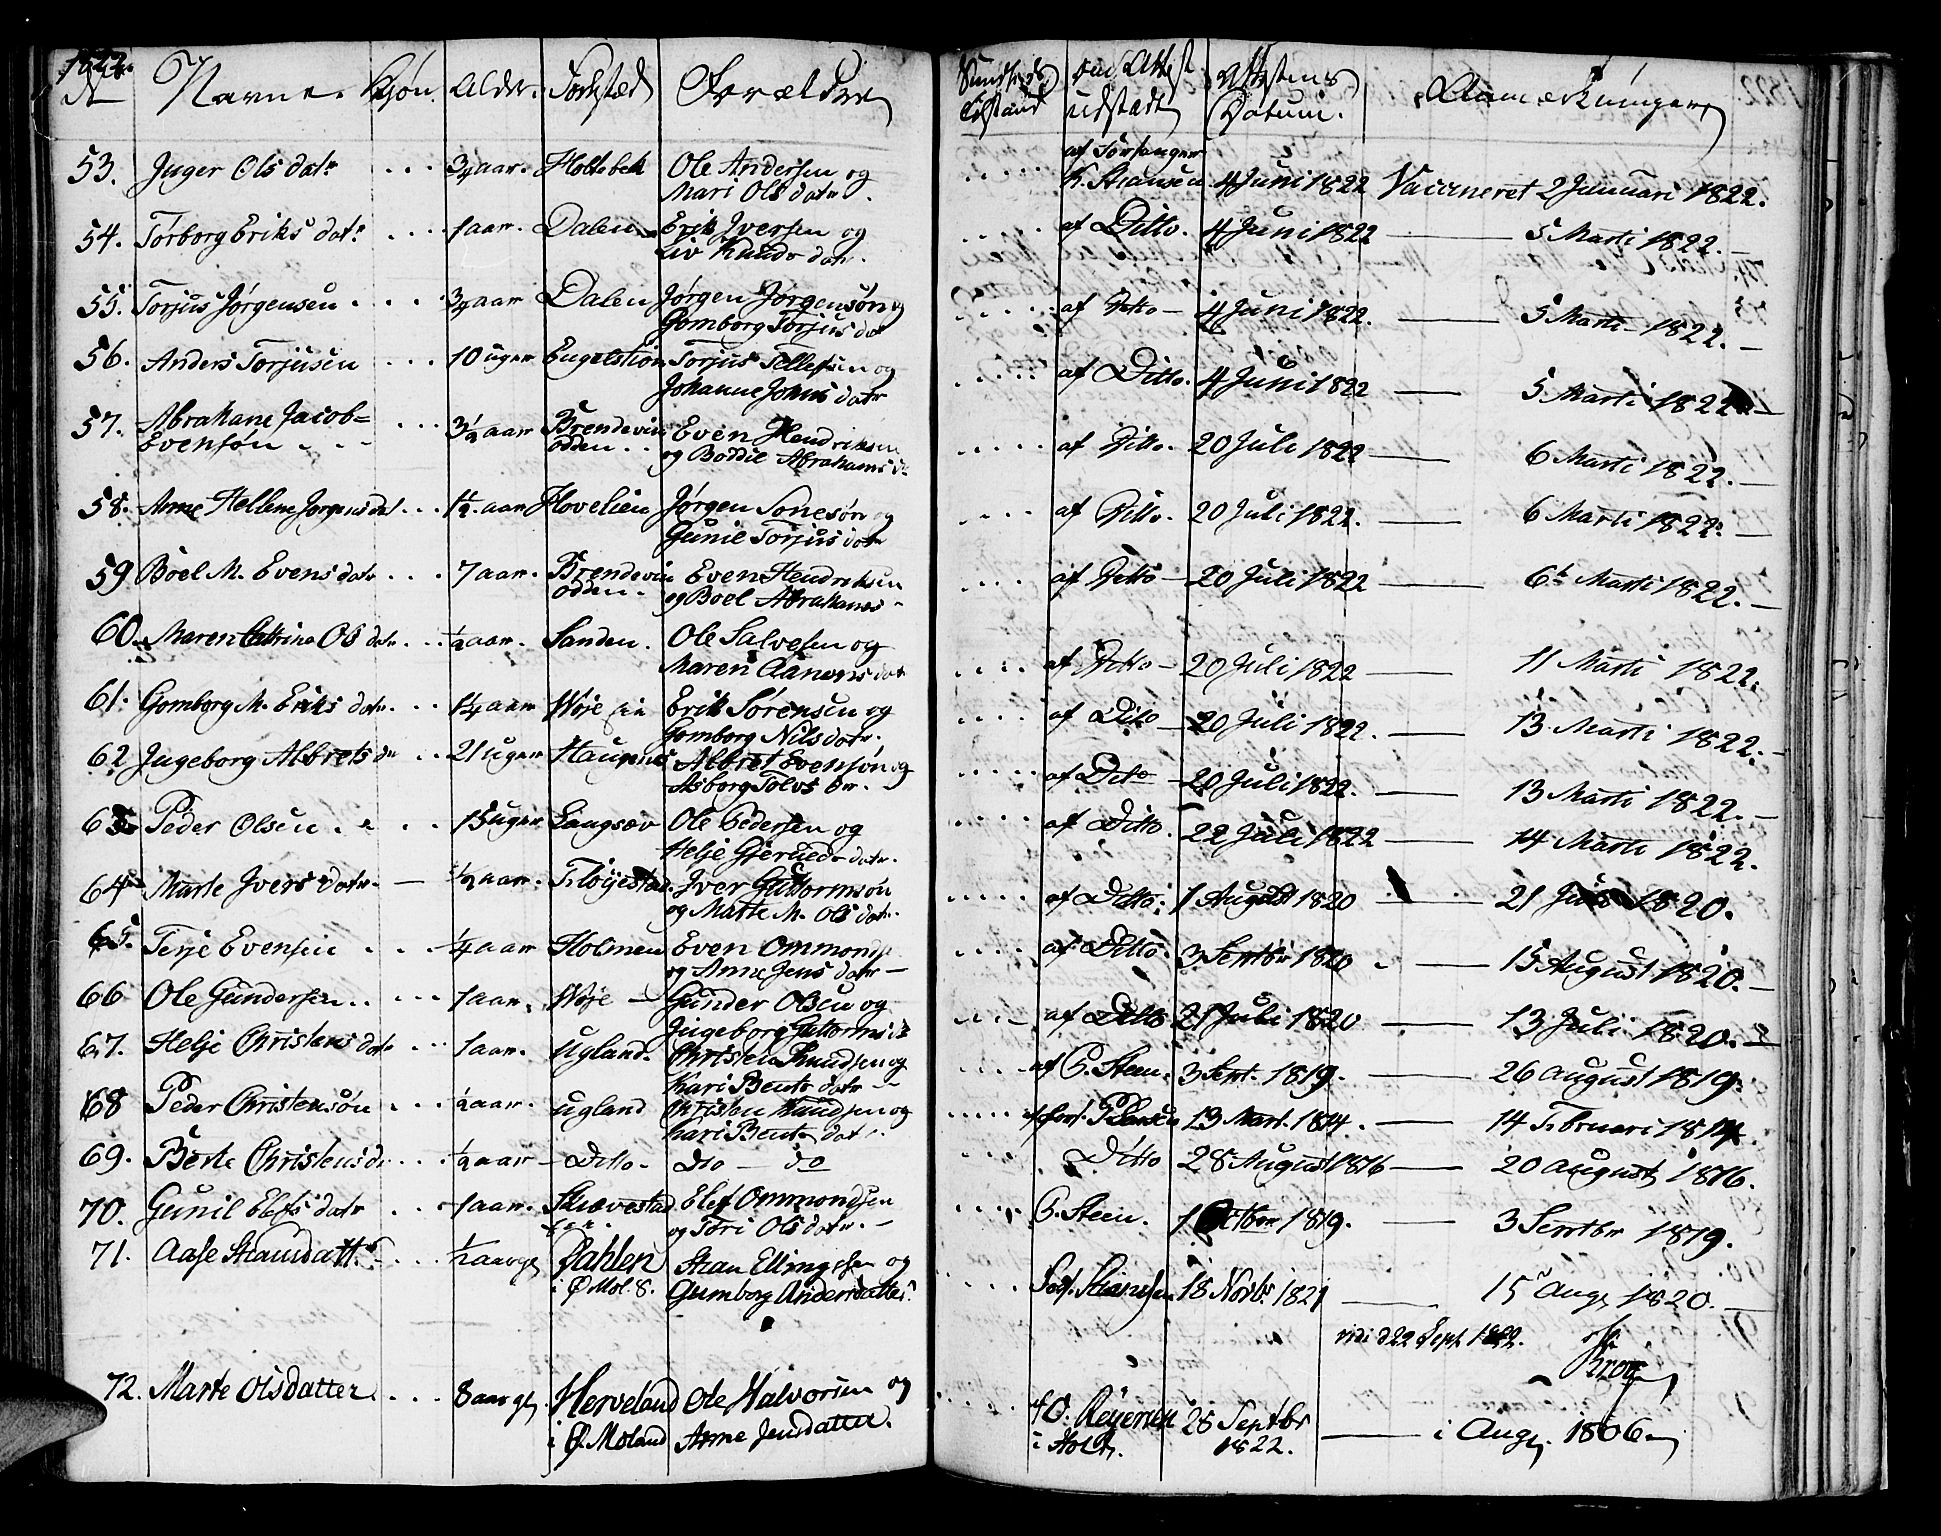 1822.
N Navne. Kjøn. Alder. Fødested Forældre Sundheds Tilstand om Attest udstædt Attestens Datum. Anmærkninger
53. Inger Ols datr ... 3/4 aar. Holtebek Ole Andersen og ..... af Forsanger
Mari Ols datr. K. Stiansen 4 Juni 1822 Vaccineret 2 Januari 1822.
54. Torborg Eriks datr .... 1 aar. Dalen Erik Iversen og ..... af Ditto. 4 Juni 1822 — 5 Marti 1822. —
Liv Knuds datr.
55. Torjus Jørgensen .... 3/4 aar Dalen Jørgen Jørgensøn og ..... af Ditto — 4 Juni 1822. — 5 Marti 1822. —
Gomborg Torjus dat
56. Anders Torjusen ... 10 uger Engelstion Torjus Tellefsen og ..... af Ditto. 4 Juni 1822 — 5 Marti 1822 —
Johanne Johns datr
57. Abrahane Jacob= ... 3 1/2 aar Brendeviin Even Hendriksen ..... af Ditto. 20 Juli 1822 — 6 Marti 1822. —
Evensøn . - - odden .. og Boddil Abrahams d
58. Anne Hellene Jørgens dat ... 1 1/2 aar Hovelien Jørgen Sonesøn og .... af Ditto. 20 Juli 1822. — 6 Marti 1822. —
Gunil Torjus datr
59 Boel M. Evens datr ... 7 aar. Brendeviin Even Hendriksen .... af Ditto — 20 Juli 1822 — 6 Marti 1822. —
odden. og Boel Abrahams -
60. Maren Cattrina Ols datr ... 1/2 aar. Sanden. Ole Salvesen og ..... af Ditto — 20 Juli 1822 — 11 Marti 1822.
Maren Aanons dat
61. Gomborg M. Eriks datr. .. 1 1/4 aar Woje Erik Sørensen og .... af Ditto — 20 Juli 1822. — 13 Marti 1822. —
Gomborg Nils datr.
62 Ingeborg Albrets dr .. 21 uger Haugenes Albret Evensøn og ..... af Ditto — 20 Juli 1822. — 13 Marti 1822. —
Asborg Tolvs dr.
63 Peder Olsen .. .. 15 uger Langsæv Ole Pedersen og ..... af Ditto. 22 Juli 1822 — 14 Marti 1822.
Helje Gjeruds datr.
64 Marte Ivers datr. — 1/2 aar. Fløyestad Iver Guttormsøn .... af Ditto. 1 August 1820 — 21 Juli 1820.
og Marte M. Ols datr.
65. Terje Evensen ... 1/4 aar Holmen Even Ommonds ..... af Ditto. 3 Septbr 1820 — 15 August 1820. —
og Anne Jens datr —
66 Ole Gundersen .. ... 1 aar. Woje — Gunder Olsen og .... af Ditto 21 Juli 1820 — 13 Juli 1820. —
Ingeborg Guttorms
67. Helje Christens datr ... 1 aar. Ugland. Christen Knudsen og .... af P. Steen. 3 Sept. 1819. — 26 August 1819.
Kari Bents datr --
68 Peder Christensøn ... 1/2 aar. Ugland Christen Knudsen og ..... 13 Mart. 1814. — 14 Februari 1814.
Kari Bents datr.
69. Berte Christens dr .... 1/2 aar — Ditto — do — do . Ditto 28 August 1816 — 20 August 1816.
70. Gunil Elefs datr ... 1 aar. Skiævestad Elef Ommondsen ..... P. Steen. 1 Octbr 1819. — 3 Septbr 1819.
og Tori Ols datr. —
71. Aase Stiansdattr ... 1/2 aar gl Dahlen Stian Ellingssen og ..... Stiansen 18 Novbr 1821 — 15 Aug 1820. —
i Ø Mol. S. Gumborg Andersdatter.
vidi d 22 Sept 1822.
Krog
72. Marte Olsdatter. ... 8 aar gl. Herveland Ole Halvorsen og ..... O. Reiersen 28 Septbr
i Ø. Moland Anne Jensdatter. i Holt. 1822. — i Aug. 1806.